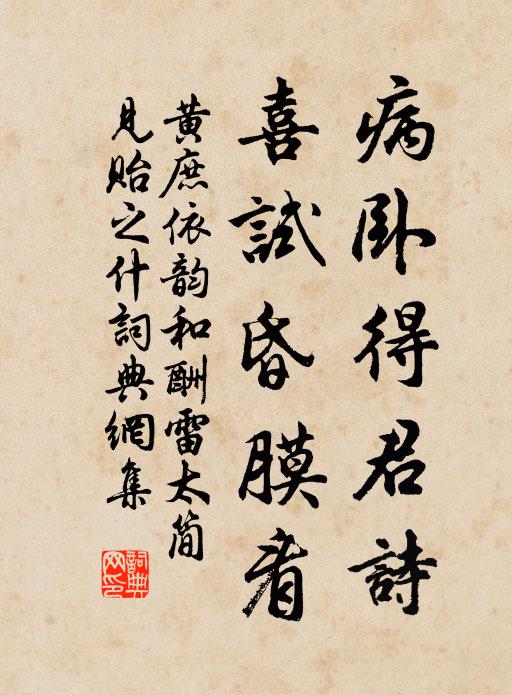 病卧得君詩
喜試昏膜看
黄庶依韵和酬雷太简
見貽之什詞典網集
詞典网印